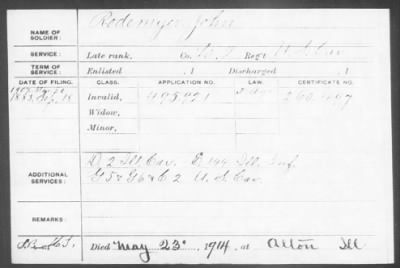 NAME OF SOLDIER: Rodemyer John
SERVICE: Late rank, Co. Regt
TERM OF SERVICE: Enlisted , 1 Discharged , 1
DATE OF FILING. CLASS. APPLICATION NO. LAW. CERTIFICATE NO.
Invalid, 495.921
Widow,
Minor,
ADDITIONAL SERVICES: D 2 Ill Cav. E 144 Ill. Inf.
G 5 & G 6 & C 2 U. S. Cav
REMARKS:
Died May 23, 1914, at Alton Ill.